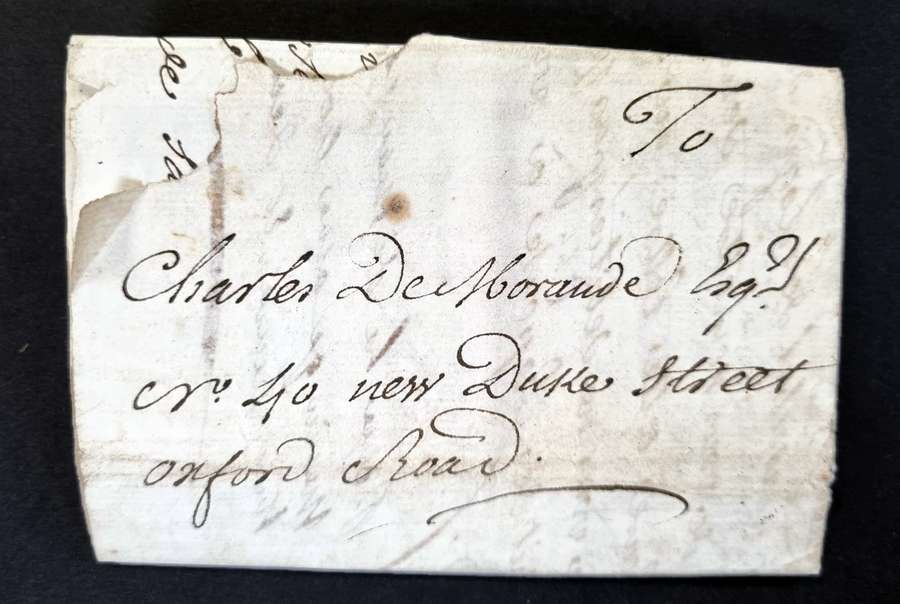 To
Charles De Morande Esqr.
No. 40 new Duke Street
oxford Road.